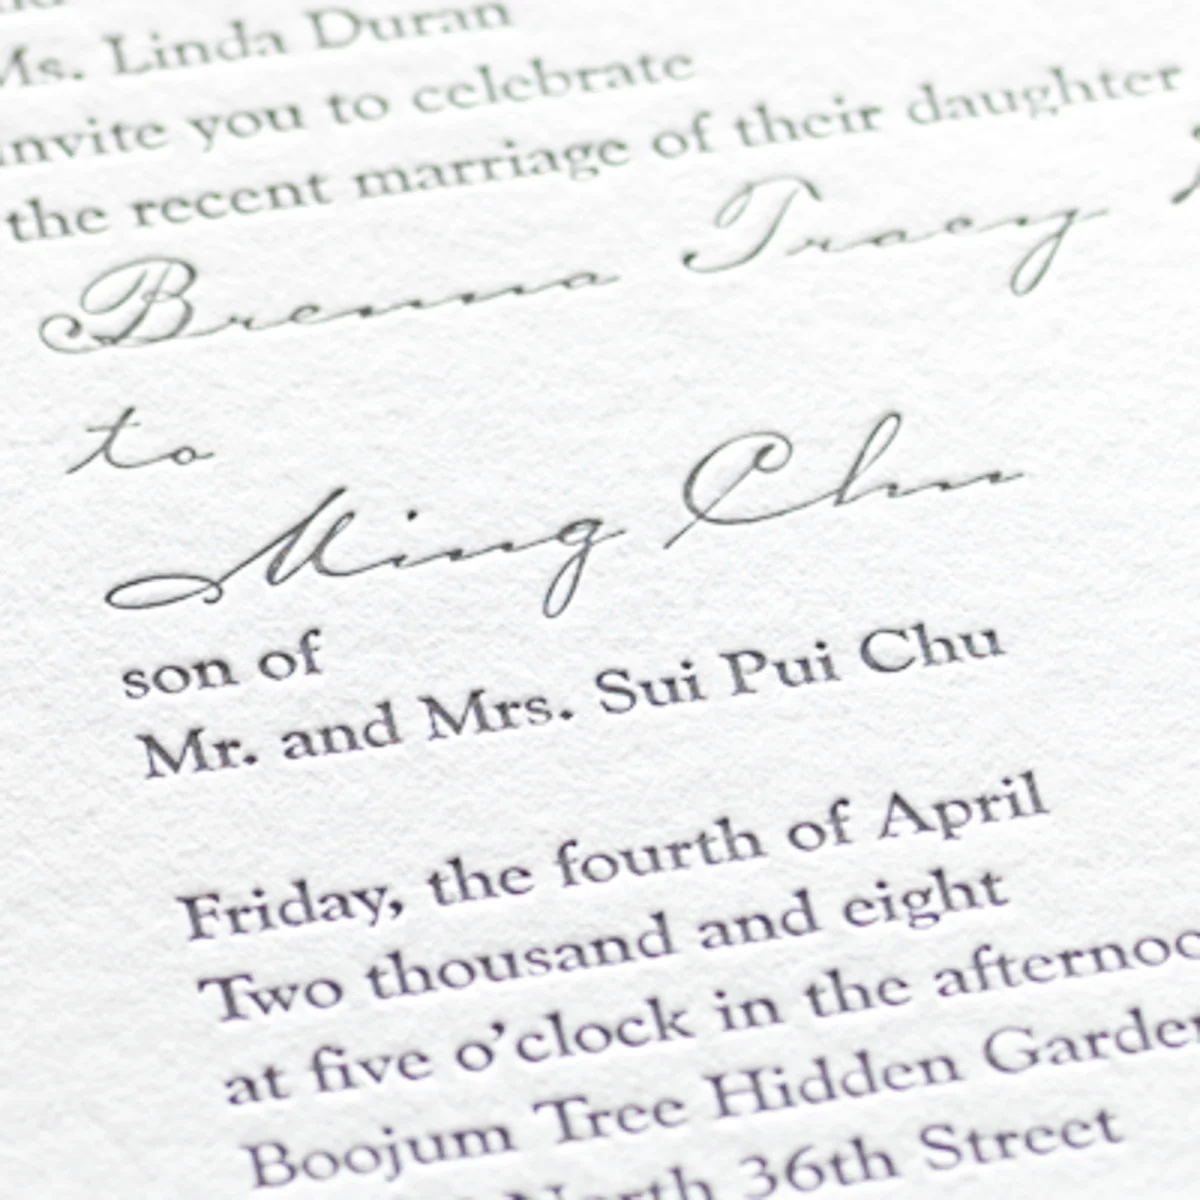 Ms. Linda Duran
invite you to celebrate
the recent marriage of their daughter
Brenna Tracy
to
Ming Chu
son of
Mr. and Mrs. Sui Pui Chu
Friday, the fourth of April
Two thousand and eight
at five o'clock in the afternoo
Boojum Tree Hidden Garden
North 36th Street